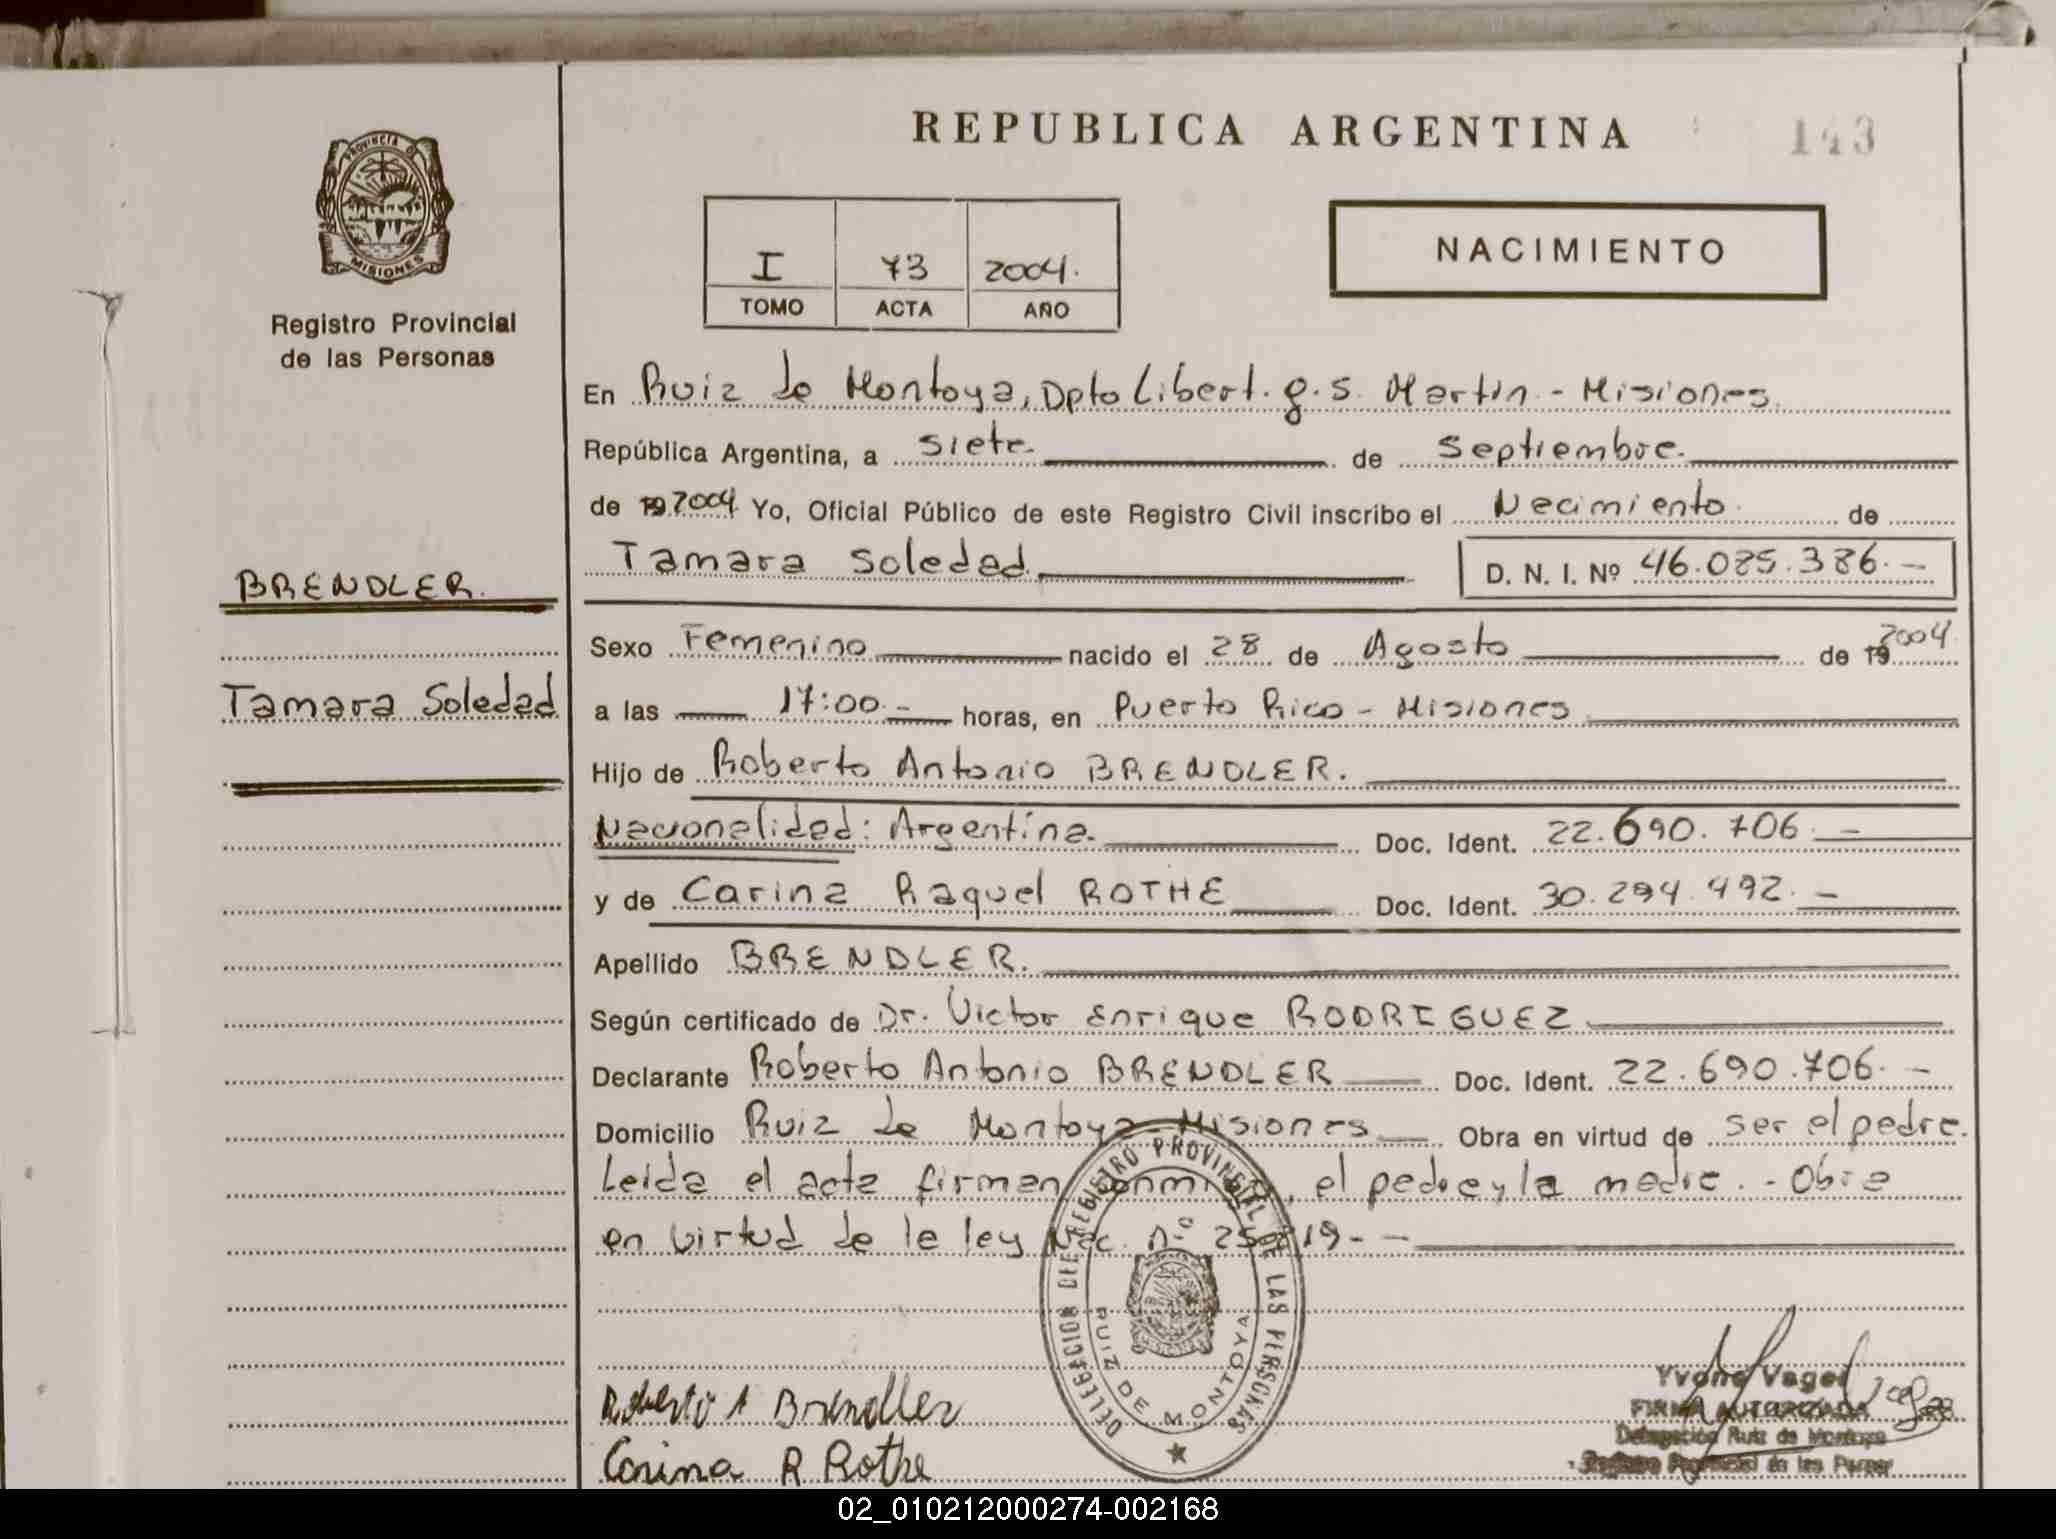 REPUBLICA ARGENTINA
143
PROVINCIA DE
MISIONES
Registro Provincial
de las Personas
I 73 2004.
TOMO ACTA AÑO
NACIMIENTO
En Ruiz de Montoya, Dpto Libert. g. S. Martin - Misiones.
República Argentina, a siete de septiembre.
de 19 2004 Yo, Oficial Público de este Registro Civil inscribo el Nacimiento de
Tamara Soledad. D. N. I. Nº 46.085.386.-
BRENDLER.
Tamara Soledad
Sexo Femenino nacido el 28 de Agosto de 19 2004
a las 17:00.- horas, en Puerto Rico - Misiones
Hijo de Roberto Antonio BRENDLER.
Nacionalidad: Argentina. Doc. Ident. 22.690.706.-
y de Carina Raquel ROTHE Doc. Ident. 30.294.492.-
Apellido BRENDLER.
Según certificado de Dr. Victor Enrique RODRIGUEZ
Declarante Roberto Antonio BRENDLER Doc. Ident. 22.690.706.-
Domicilio Ruiz de Montoya - Misiones Obra en virtud de ser el padre.
Leida el acta firman conmigo, el padre y la madre. - Obra
en virtud de la ley Nac. Nº 25.819.-
DELEGACION DEL REGISTRO PROVINCIAL DE LAS PERSONAS
RUIZ DE MONTOYA
Roberto A Brendler
Carina R Rothe
Yvone Vagel
FIRMA AUTORIZADA
Delegación Ruiz de Montoya
Provincial de las Person
02_010212000274-002168